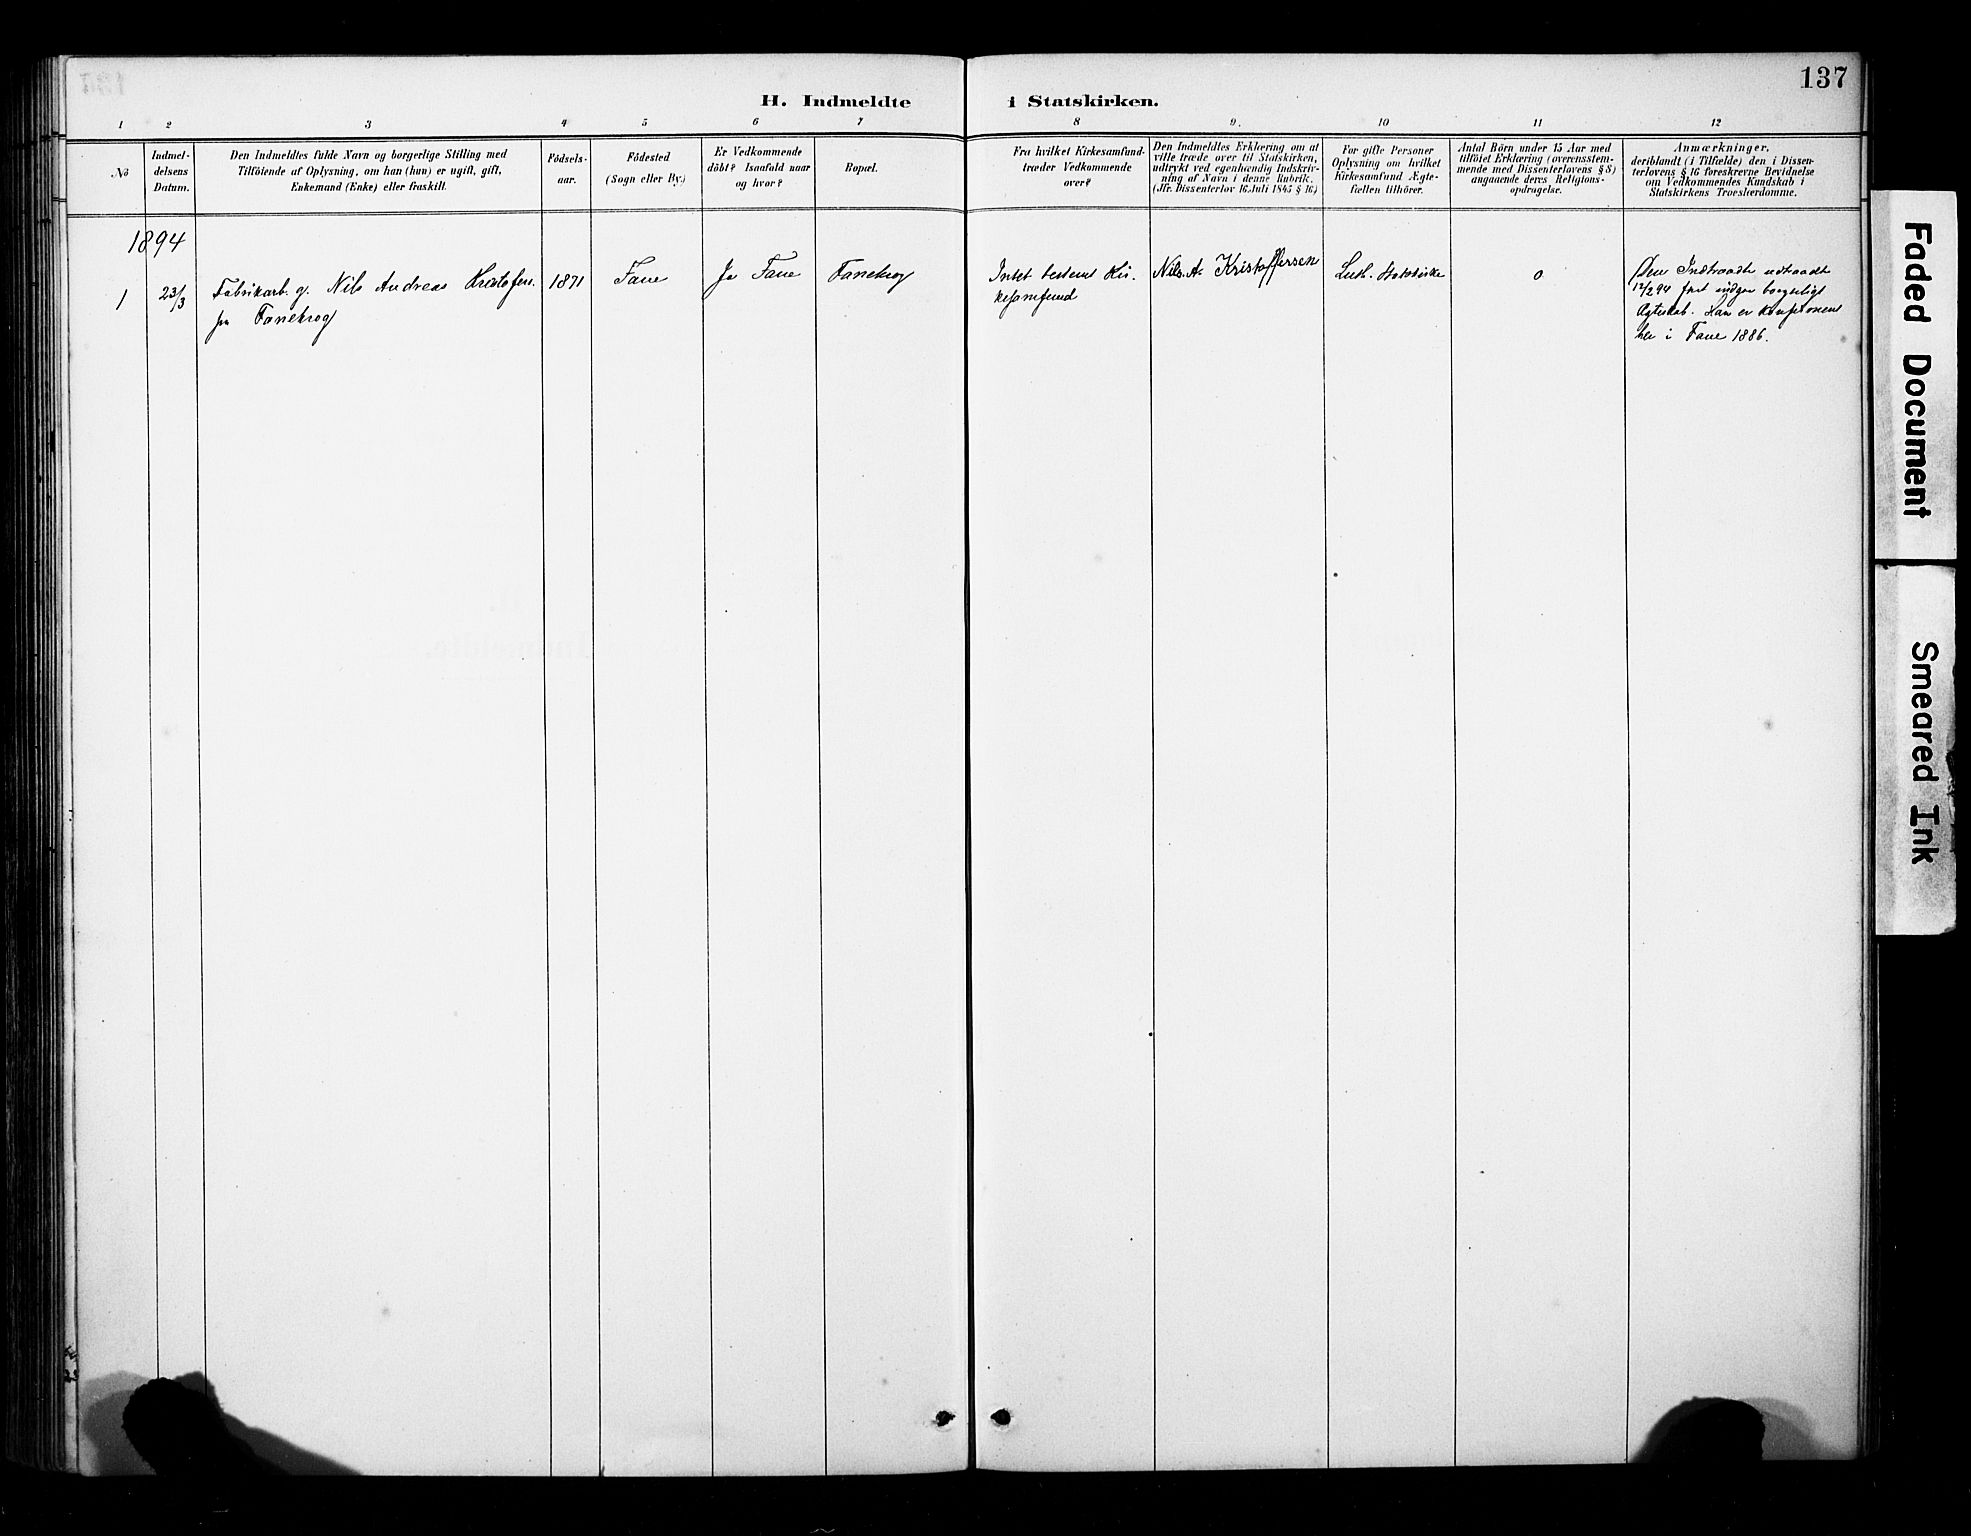 137
H. Indmeldte i Statskirken.
1 2 3 4 5 6 7 8 9. 10 11 12
No
Indmel-
delsens
Datum.
Den Indmeldtes fulde Navn og borgerlige Stilling med
Tilföiende af Oplysning, om han (hun) er ugift, gift,
Enkemand (Enke) eller fraskilt.
Födsels-
aar.
Födested
(Sogn eller By.)
Er Vedkommende
döbt? Isaafald naar
og hvor?
Bopæl.
Fra hvilket Kirkesamfund-
træder Vedkommende
over?
Den Indmeldtes Erklæring om at
ville træde over til Statskirken,
udtrykt ved egenhændig Indskriv-
ning af Navn i denne Rubrik.
(Jfr. Dissenterlov 16 Juli 1845 § 16.)
For gifte Personer
Oplysning om hvilket
Kirkesamfund Ægte-
fællen tilhörer.
Antal Börn under 15 Aar med
tilföiet Erklæring (overensstem-
mende med Dissenterlovens § 8)
angaaende deres Religions-
opdragelse.
Anmærkninger,
deriblandt (i Tilfælde) den i Dissen-
terlovens § 16 foreskrevne Bevidnelse
om Vedkommendes Kundskab i
Statskirkens Troeslærdomme.
1894
1
23/3
Fabrikarb. g. Nils Andreas Kristofers.
1871
Fane
Ja Fane
Fanekrog
Intet bestemt Kir-
kesamfund
Nils. A. Kristoffersen
Luth. Statskirke
0
Den Indtraadte udtraadte
12/2 94 for at indgaa borgerligt
Ægteskab. Han er konfirmeret
her i Fane 1886.
Fanekrog
Faded Document
Smeared Ink